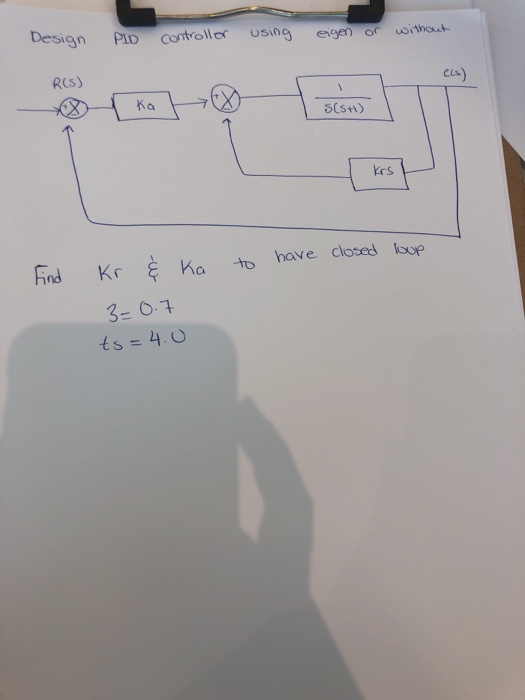 Design PID controller using eigen or without
R(s)
C(s)
+
Ka
+
1
S(S+1)
KrS
Find Kr & Ka to have closed loop
3= 0.7
ts = 4.0